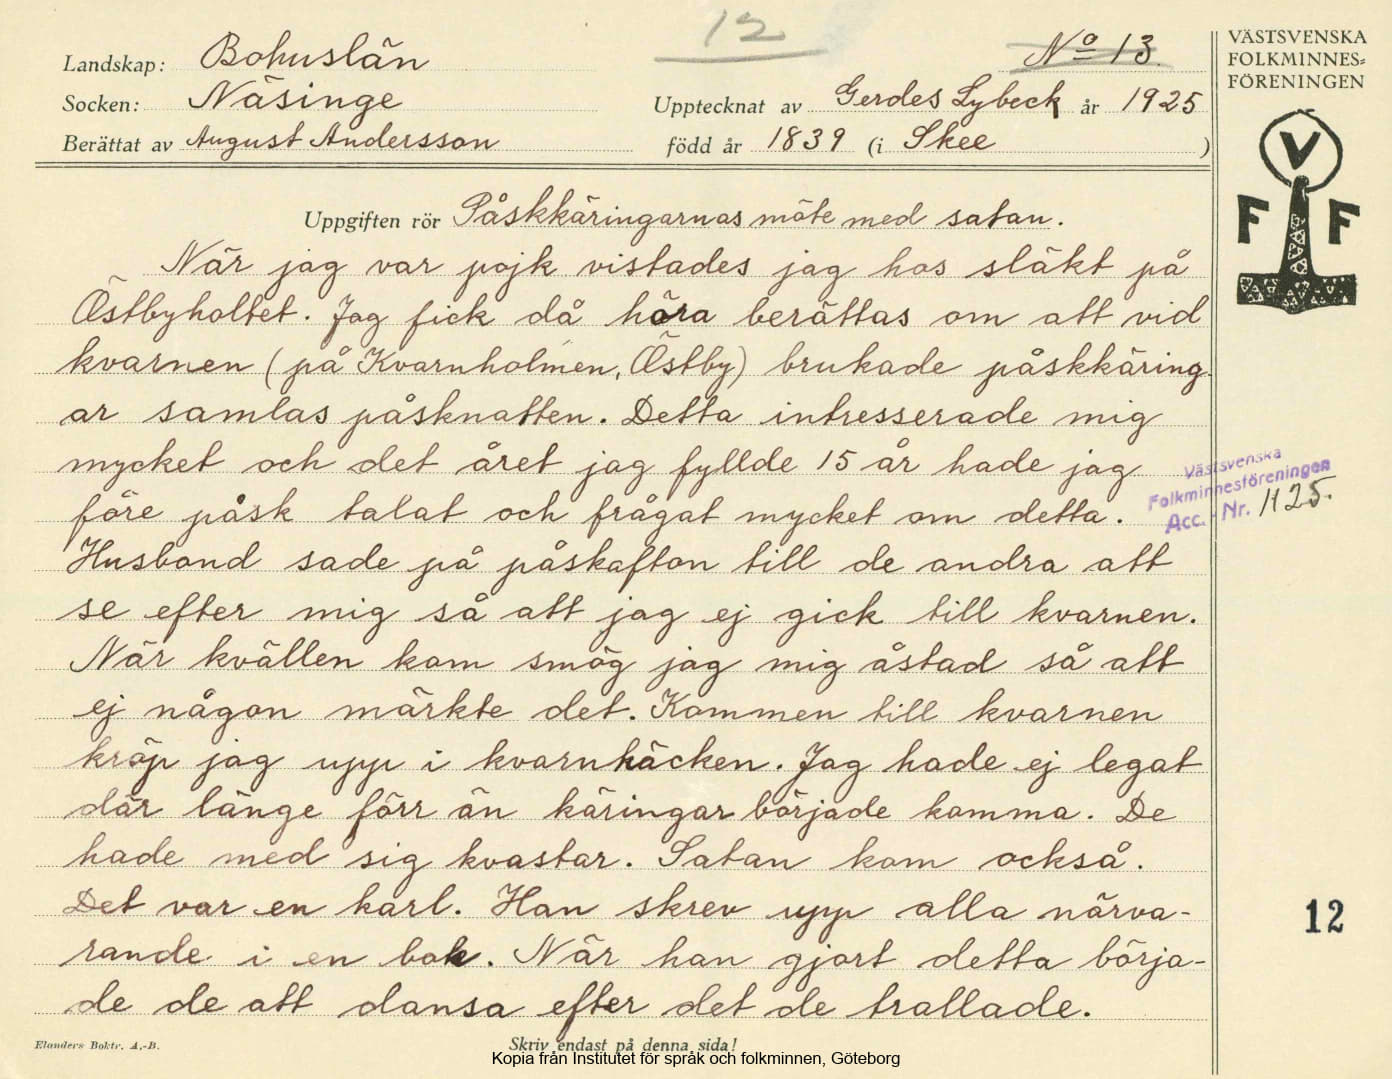 12
Nº 13.
Landskap: Bohuslän
Socken: Näsinge
Upptecknat av Gerdes Lybeck år 1925
Berättat av August Andersson
född år 1839 (i Skee )
Uppgiften rör Påskkäringarnas möte med satan.
När jag var pojk vistades jag hos släkt på
Östbyholtet. Jag fick då höra berättas om att vid
kvarnen (på Kvarnholmen, Östby) brukade påskkäring-
ar samlas påsknatten. Detta intresserade mig
mycket och det året jag fyllde 15 år hade jag
före påsk talat och frågat mycket om detta.
Husbond sade på påskafton till de andra att
se efter mig så att jag ej gick till kvarnen.
När kvällen kom smög jag mig åstad så att
ej någon märkte det. Kommen till kvarnen
kröp jag upp i kvarnhäcken. Jag hade ej legat
där länge förr än käringar började komma. De
hade med sig kvastar. Satan kom också.
Det var en karl. Han skrev upp alla närva-
rande i en bok. När han gjort detta börja-
de de att dansa efter det de trallade.
Elanders Boktr. A.-B.
Skriv endast på denna sida!
Kopia från Institutet för språk och folkminnen, Göteborg
VÄSTSVENSKA
FOLKMINNES-
FÖRENINGEN
V
F F
Västsvenska
Folkminnesföreningen
Acc. Nr. 1125.
12